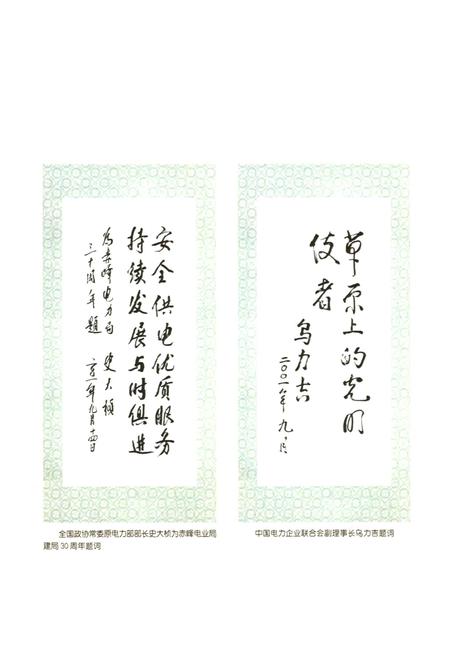 安全供电优质服务
持续发展与时俱进
为赤峰电力局
三十周年题
史大桢
二〇〇一年九月十四日
全国政协常委原电力部部长史大桢为赤峰电业局
建局30周年题词
草原上的光明
使者
乌力吉
二〇〇一年九月
中国电力企业联合会副理事长乌力吉题词